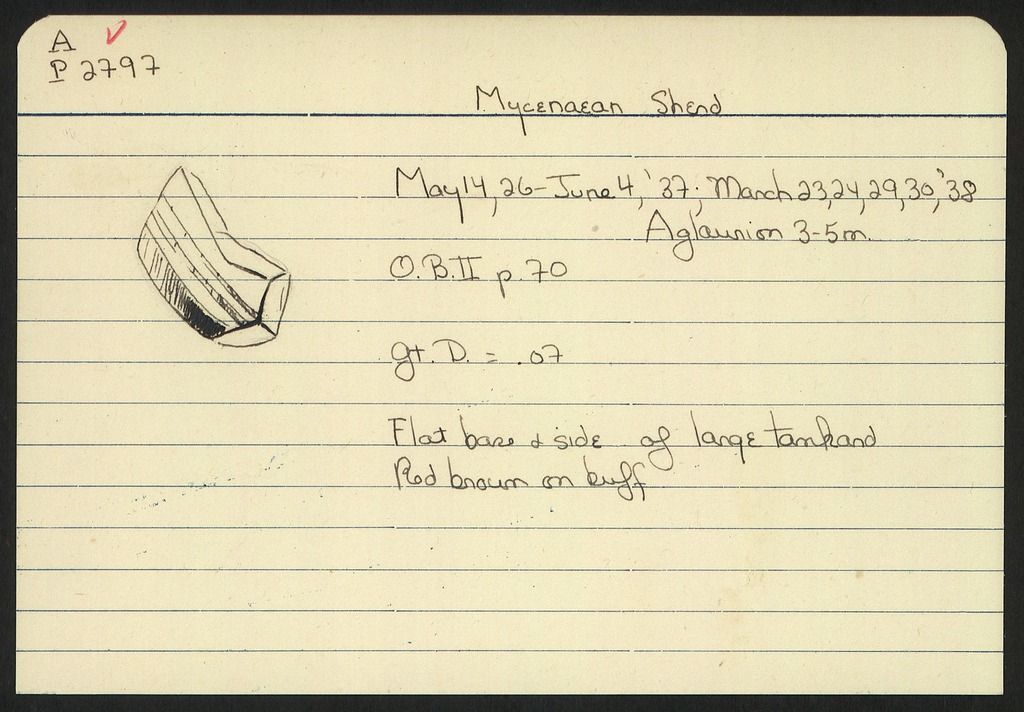 A
P 2797
Mycenaean Sherd
May 14, 26-June 4, '37; March 23, 24, 29, 30, '38
Aglaurion 3-5m.
O.B.II p. 70
gt. D. = .07
Flat base & side of large tankard
Red brown on buff